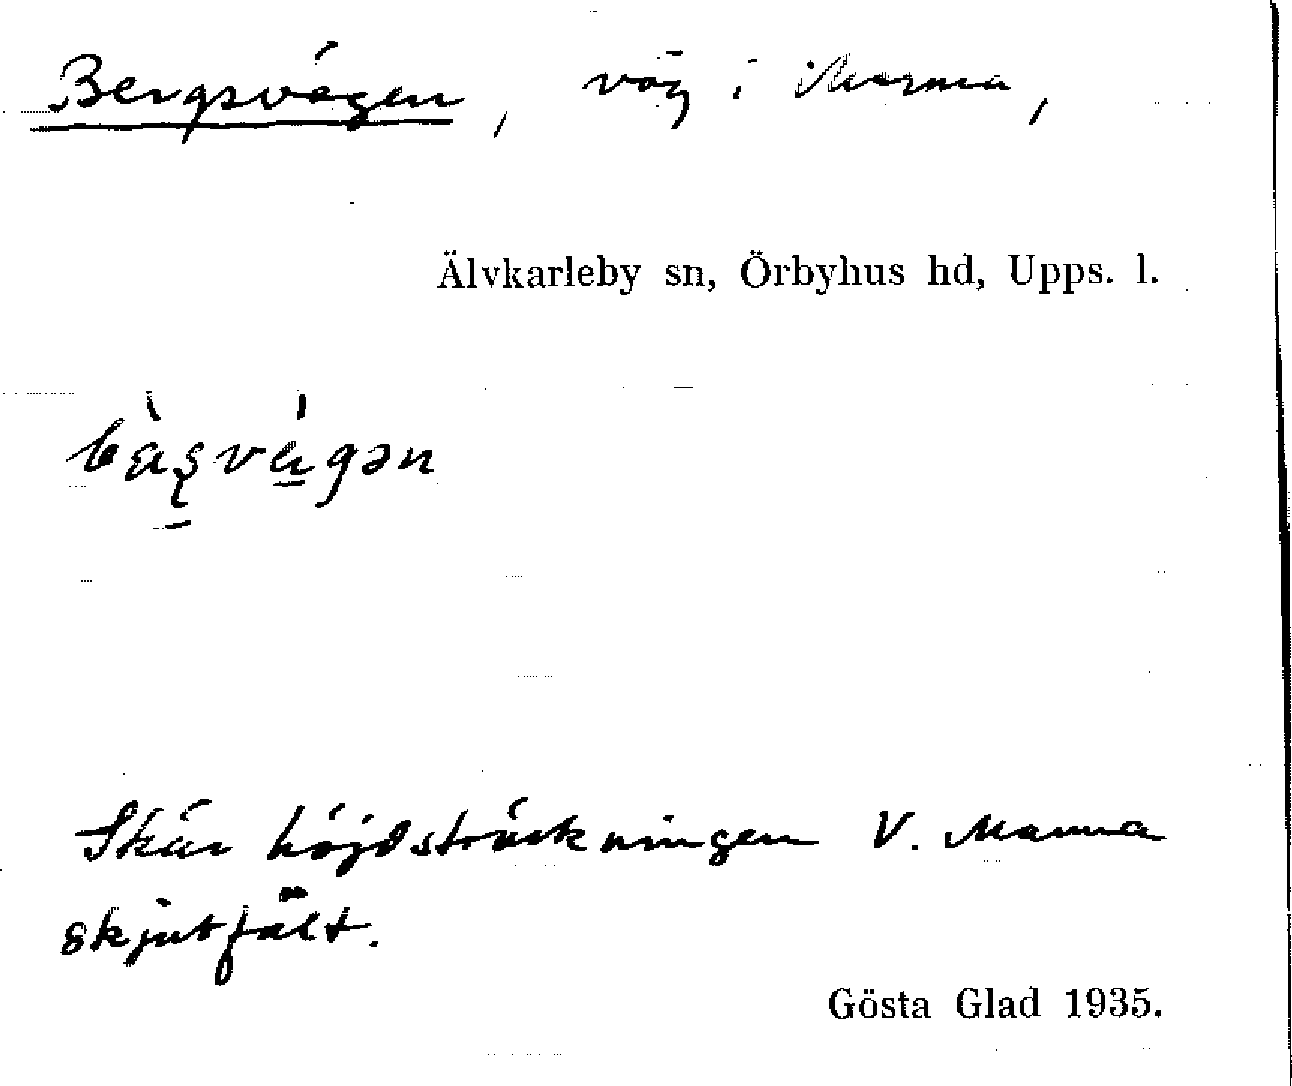 Bergsvägen, väg i Marma,
Älvkarleby sn, Örbyhus hd, Upps. l.
Skär höjdsträckningen V. Marma
skjutfält.
Gösta Glad 1935.